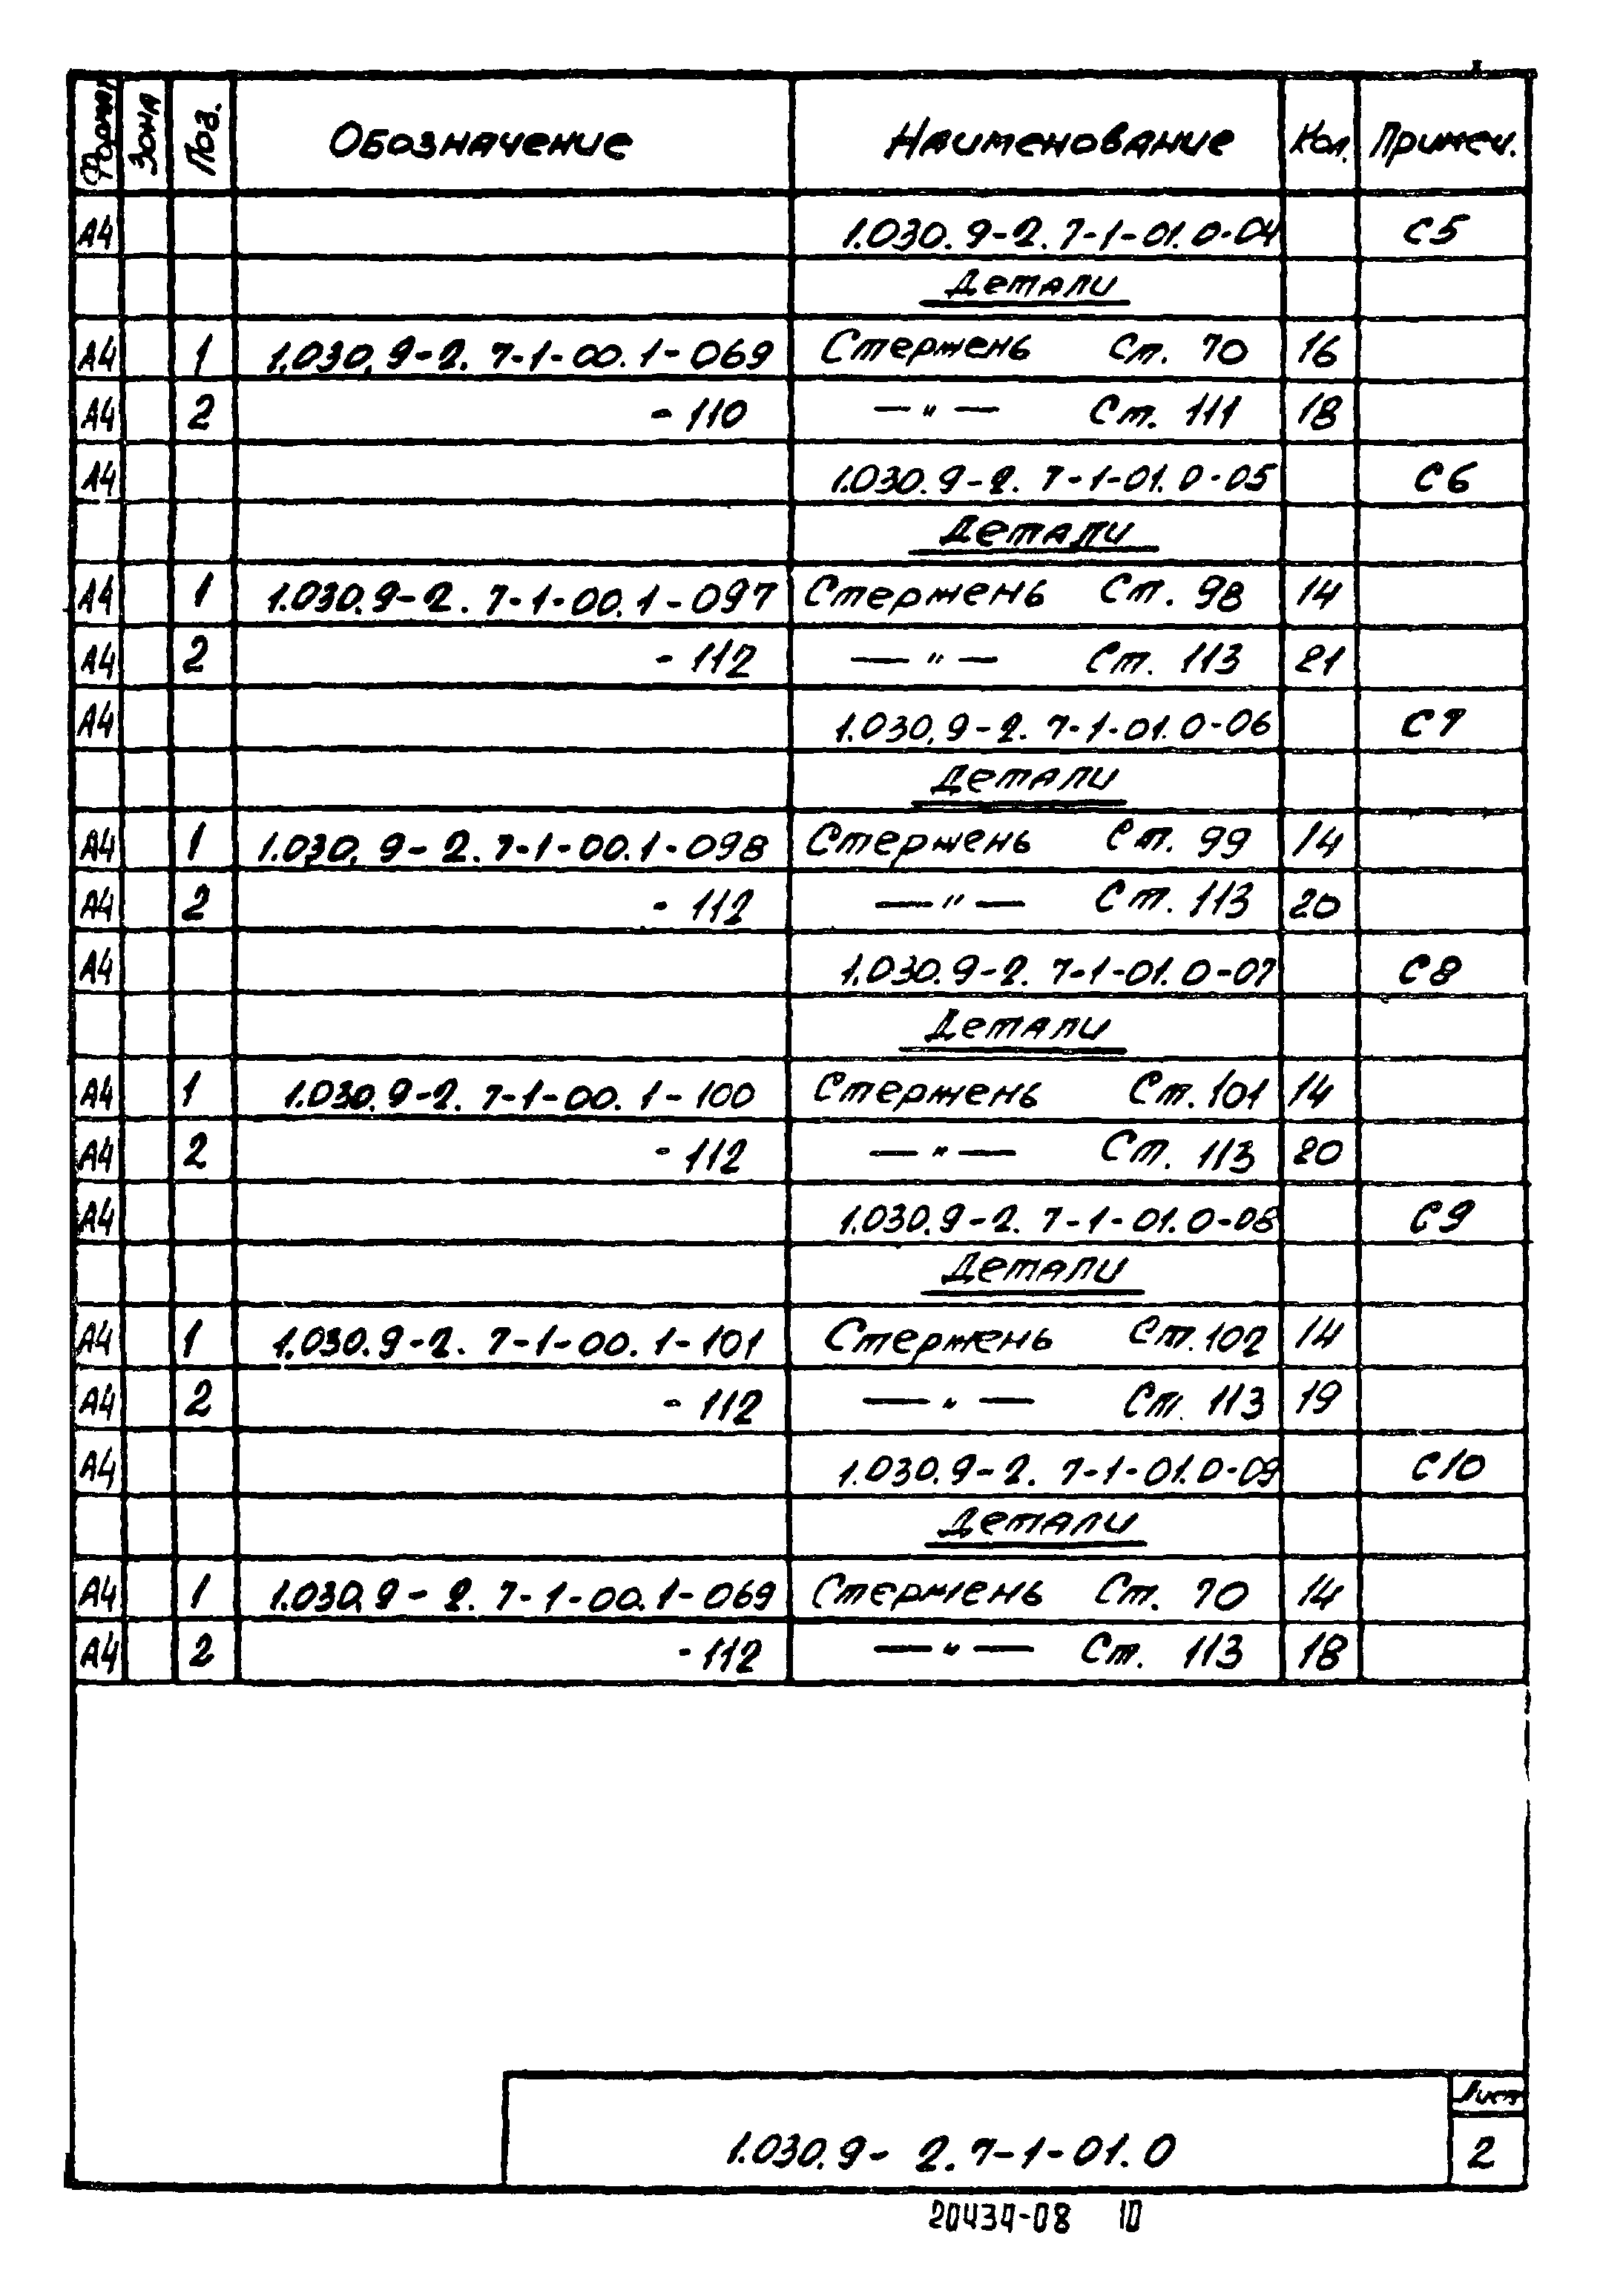 Формат Зона Поз. Обозначение Наименование Кол. Примеч.
А4 1.030.9-2.7-1-01.0-04 С5
Детали
А4 1 1.030.9-2.7-1-00.1-069 Стержень Ст. 70 16
А4 2 -110 —"— Ст. 111 18
А4 1.030.9-2.7-1-01.0-05 С6
Детали
А4 1 1.030.9-2.7-1-00.1-097 Стержень Ст. 98 14
А4 2 -112 —"— Ст. 113 21
А4 1.030.9-2.7-1-01.0-06 С7
Детали
А4 1 1.030.9-2.7-1-00.1-098 Стержень Ст. 99 14
А4 2 -112 —"— Ст. 113 20
А4 1.030.9-2.7-1-01.0-07 С8
Детали
А4 1 1.030.9-2.7-1-00.1-100 Стержень Ст. 101 14
А4 2 -112 —"— Ст. 113 20
А4 1.030.9-2.7-1-01.0-08 С9
Детали
А4 1 1.030.9-2.7-1-00.1-101 Стержень Ст. 102 14
А4 2 -112 —"— Ст. 113 19
А4 1.030.9-2.7-1-01.0-09 С10
Детали
А4 1 1.030.9-2.7-1-00.1-069 Стержень Ст. 70 14
А4 2 -112 —"— Ст. 113 18
Лист
1.030.9-2.7-1-01.0 2
20434-08 10